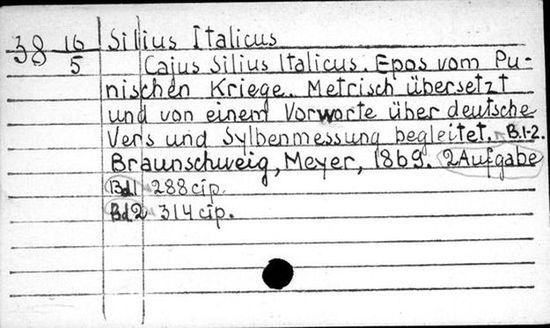 38 16/5 Silius Italicus
Cajus Silius Italicus. Epos vom Pu-
nischen Kriege. Metrisch übersetzt
und von einem Vorworte über deutsche
Vers und Sylbenmessung begleitet. B.1-2.
Braunschweig, Meyer, 1869. 2Aufgabe
Bd1 288 cip.
Bd2 314 cip.